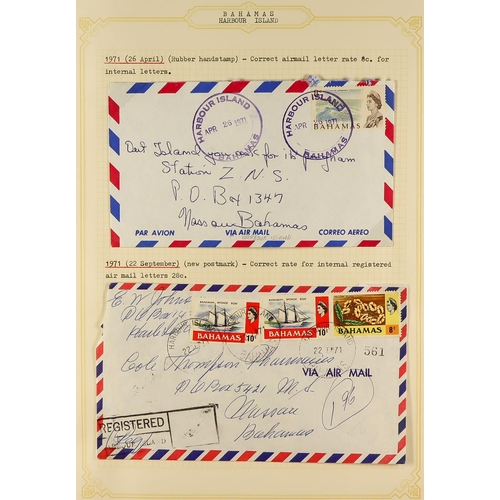 BAHAMAS
HARBOUR ISLAND
1971 (26 April) (Rubber handstamp) - Correct airmail letter rate 8c. for
internal letters.
HARBOUR ISLAND
APR 26 1971
BAHAMAS
HARBOUR ISLAND
APR 26 1971
BAHAMAS
BAHAMAS
Island you ask for
Station Z N.S.
P.O. Box 1347
Nassau Bahamas
PAR AVION VIA AIR MAIL CORREO AEREO
1971 (22 September) (new postmark) - Correct rate for internal registered
air mail letters 28c.
BAHAMAS 10c
BAHAMAS 10c
BAHAMAS 8c
561
Cole Thompson Pharmacies
P.O. Box 5421 M.S.
VIA AIR MAIL
Nassau
Bahamas
REGISTERED
ISLAND